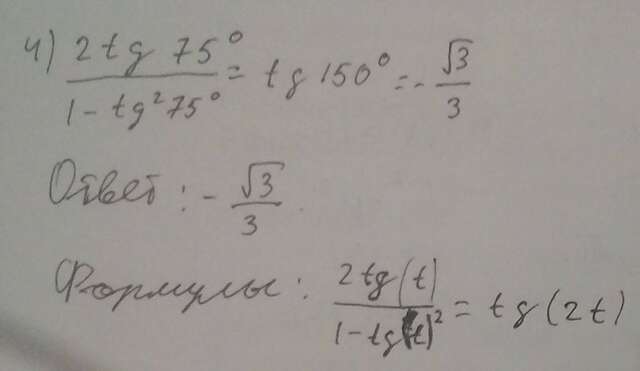 4) 2tg 75° / 1-tg²75° = tg 150° = -√3/3
Ответ: -√3/3.
Формулы: 2tg(t) / 1-tg(t)² = tg(2t)